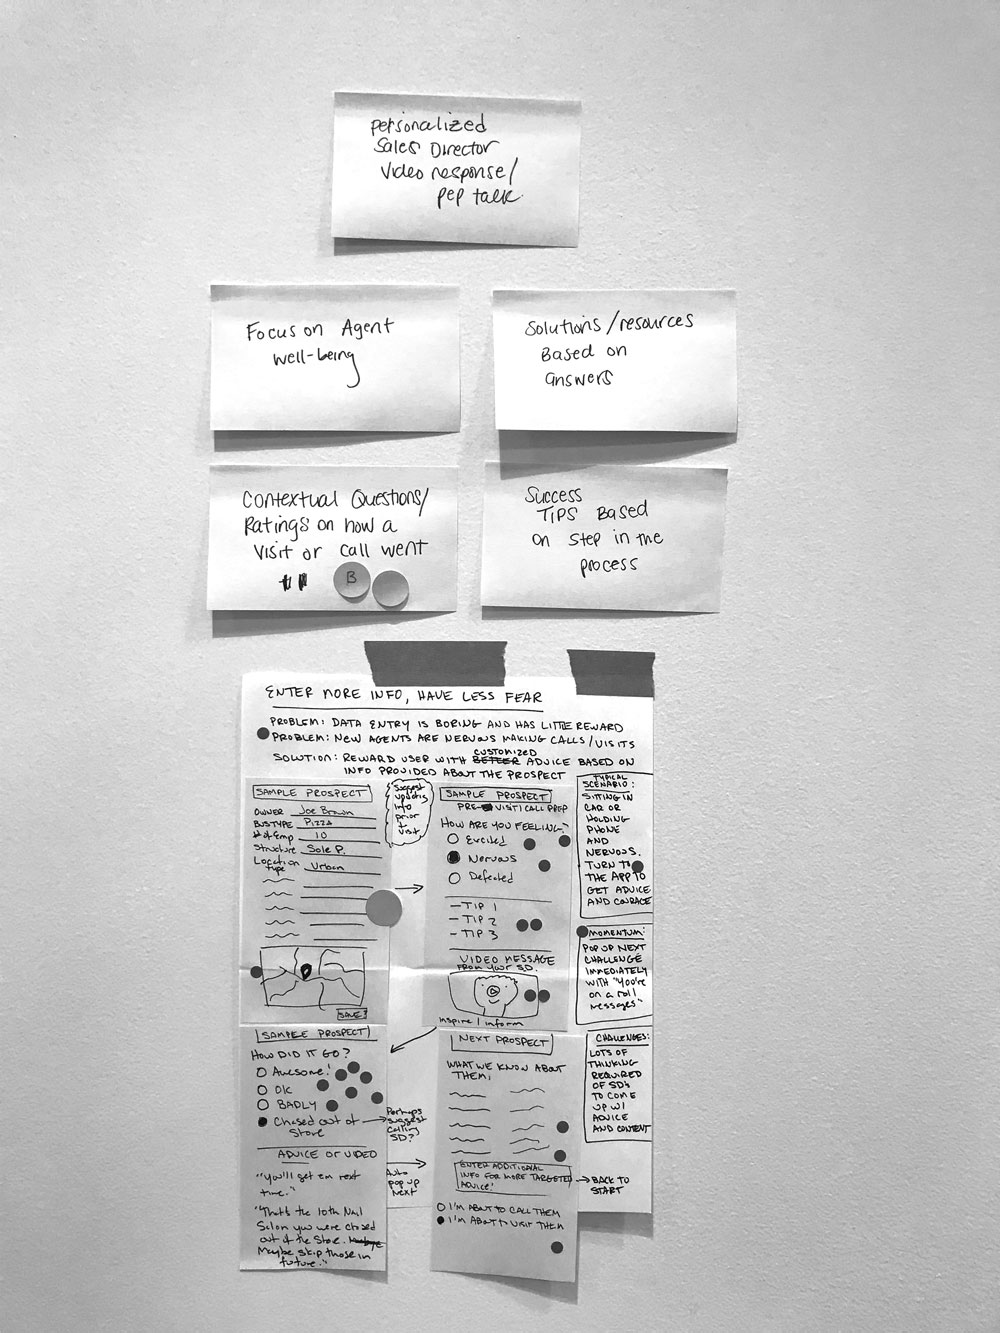 personalized
Sales Director
video response/
pep talk.
Focus on Agent
well-being
Solutions/resources
Based on
answers
Contextual Questions/
Ratings on how a
visit or call went
B
Success
Tips Based
on step in the
process
ENTER MORE INFO, HAVE LESS FEAR
PROBLEM: DATA ENTRY IS BORING AND HAS LITTLE REWARD
PROBLEM: NEW AGENTS ARE NERVOUS MAKING CALLS/VISITS
SOLUTION: REWARD USER WITH CUSTOMIZED ADVICE BASED ON
INFO PROVIDED ABOUT THE PROSPECT
SAMPLE PROSPECT
OWNER Joe Brown
BUSTYPE Pizza
# of Emp 10
Structure Sole P.
Location type Urban
SAVE?
Suggest
updating
info
prior
to
visit
SAMPLE PROSPECT
PRE- VISIT/CALL PREP
HOW ARE YOU FEELING?
Excited
Nervous
Defeated
- TIP 1
- TIP 2
- TIP 3
VIDEO MESSAGE
FROM YOUR SD.
Inspire / inform
TYPICAL
SCENARIO:
SITTING IN
CAR OR
HOLDING
PHONE
AND
NERVOUS.
TURN TO
THE APP TO
GET ADVICE
AND COURAGE
MOMENTUM:
POP UP NEXT
CHALLENGE
IMMEDIATELY
WITH "You're
on a roll
messages"
SAMPLE PROSPECT
HOW DID IT GO?
Awesome!
OK
BADLY
Chased out of
Store
Perhaps
suggest
calling
SD?
ADVICE OR VIDEO
"You'll get em next
time."
"That's the 10th Nail
Salon you were chased
out of the Store.
Maybe skip those in
future."
Auto
pop up
next
NEXT PROSPECT
WHAT WE KNOW ABOUT
THEM:
ENTER ADDITIONAL
INFO FOR MORE TARGETED
ADVICE!
BACK TO
START
I'M ABOUT TO CALL THEM
I'M ABOUT TO VISIT THEM
CHALLENGES:
LOTS OF
THINKING
REQUIRED
OF SD's
TO COME
UP W/
ADVICE
AND CONTENT